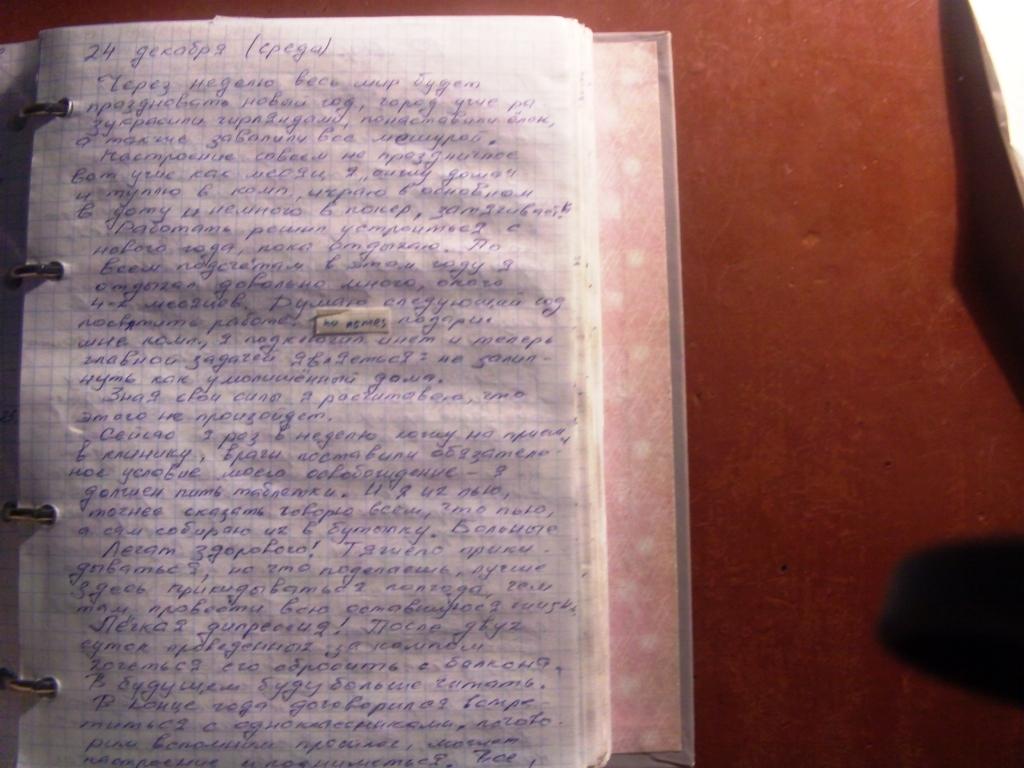 24 декабря (среда)
Через неделю весь мир будет
праздновать новый год, город уже ра
зукрасили гирляндами, понаставили ёлок,
а также завалили все мишурой.
Настроение совсем не праздничное
вот уже как месяц я сижу дома
и туплю в комп, играю в основном
в доту и немного в покер, затягивает
Работать решил устроиться с
нового года, пока отдыхаю. По
всем подсчётам в этом году я
отдыхал довольно много, около
4-х месяцев. Думаю следующий год
посвятить работе. подари-
мне комп, я подключил инет и теперь
главной задачей является не залип-
нуть как умолишённый дома.
Зная свои силы я расчитоваю, что
этого не произойдет.
Сейчас 1 раз в неделю хожу на приём
в клинику, врачи поставили обязатель
ное условие моего освобождение - я
должен пить таблетки. И я их пью,
точнее сказать говорю всем, что пью,
а сам собираю их в бутылку. Больные
Лечат здорового! Тяжело прики-
дываться, но что поделаешь, лучше
здесь прикидываться полгода, чем
там провести всю оставшуюся жизнь.
Лёгкая дипрессия! После двух
суток проведенных за компом
хочеться его сбросить с балкона.
В будущем буду больше читать.
В конце года договорился встре-
титься с одноклассниками, погово-
рим вспомним прошлое, может
настроение и поднимиться. Все,